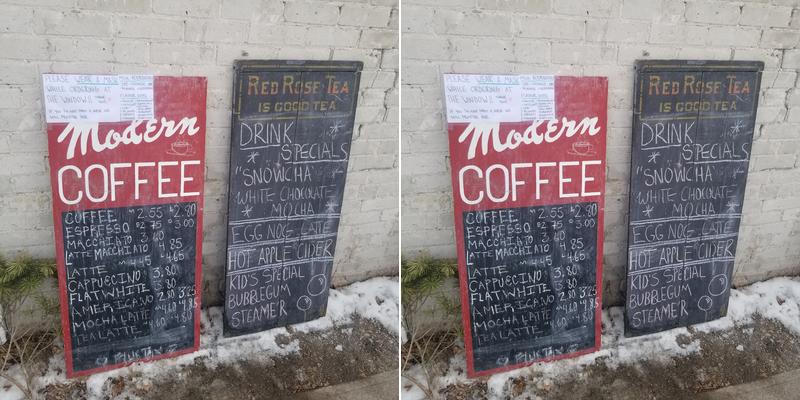 PLEASE WEAR A MASK
WHILE ORDERING AT
THE WINDOW!!
Modern
COFFEE
COFFEE 2.55 2.80
ESPRESSO 2.75 3.00
MACCHIATO 3.60
LATTE MACCHIATO 4.85
4.45 4.65
LATTE
CAPPUCCINO 3.80
FLAT WHITE 3.80
AMERICANO 2.80 3.25
MOCHA LATTE 4.60 4.85
TEA LATTE 4.60 4.80
PLUS TAX
RED ROSE TEA
IS GOOD TEA
DRINK
SPECIALS
"SNOWCHA"
WHITE CHOCOLATE
MOCHA
EGG NOG LATTE
HOT APPLE CIDER
KID'S SPECIAL
BUBBLEGUM
STEAMER
PLEASE WEAR A MASK
WHILE ORDERING AT
THE WINDOW!!
Modern
COFFEE
COFFEE 2.55 2.80
ESPRESSO 2.75 3.00
MACCHIATO 3.60
LATTE MACCHIATO 4.85
4.45 4.65
LATTE
CAPPUCCINO 3.80
FLAT WHITE 3.80
AMERICANO 2.80 3.25
MOCHA LATTE 4.60 4.85
TEA LATTE 4.60 4.80
PLUS TAX
RED ROSE TEA
IS GOOD TEA
DRINK
SPECIALS
"SNOWCHA"
WHITE CHOCOLATE
MOCHA
EGG NOG LATTE
HOT APPLE CIDER
KID'S SPECIAL
BUBBLEGUM
STEAMER